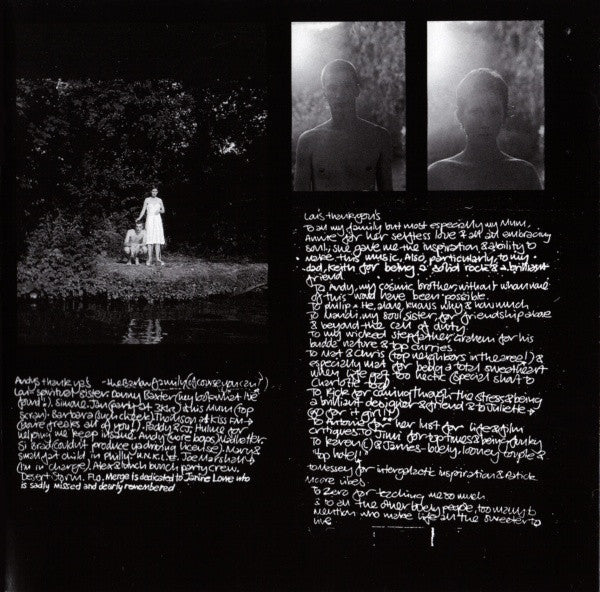 Andy's thank yu's - the Barlow family (of course you can!)
Lou - spiritual sister. Danny Baxter (my look what I've
found!). Sinead, Jan (party at 3km) & his Mum (top
Barbara Thomson at Kiss FM
(rare freaks all of you!). Paddy & CJ; Hulme for
helping me keep insane. Andy (more bops) Wallet for
Si Brad (couldn't produce yachting license). Mary &
small art child in Philly. U.N.K.L.E. Joe Marshall
(I'm in charge). Alex & lunch bunch party crew.
Desert Storm. Flo. Merge is dedicated to Janine Love who
is sadly missed and dearly remembered
Lou's thankyou's
To all my family but most especially my Mum,
Annie for her selfless love & all embracing
soul, she gave me the inspiration & ability to
make this music. Also, particularly, to my
dad, Keith for being a solid rock & a brilliant
friend
To Andy, my cosmic brother, without whom none
of this would have been possible.
To Philip - He, alone, knows why & how much
To Mandi, my Soul Sister, for friendship above
& beyond the call of duty
To my wicked stepfather, Graham for his
budda nature & top curries
To Nat & Chris (top neighbors in the area!) &
especially Nat for being a total sweetheart
when life got too hectic (special shout to
Charlotte too)
To Rick for coming through the stress & being
a brilliant designer & friend & to Juliette
(Go for it girl!)
To Antonia for her lust for life & film
critiques, to Jimi for top tunes & being funky
To Karen() & James - lovely, looney couple &
top hotel!
odyssey for intergalactic inspiration &
more vibes
To Zero for teaching me so much
& to all the other lovely people, too many to
mention who make life all the sweeter to
live